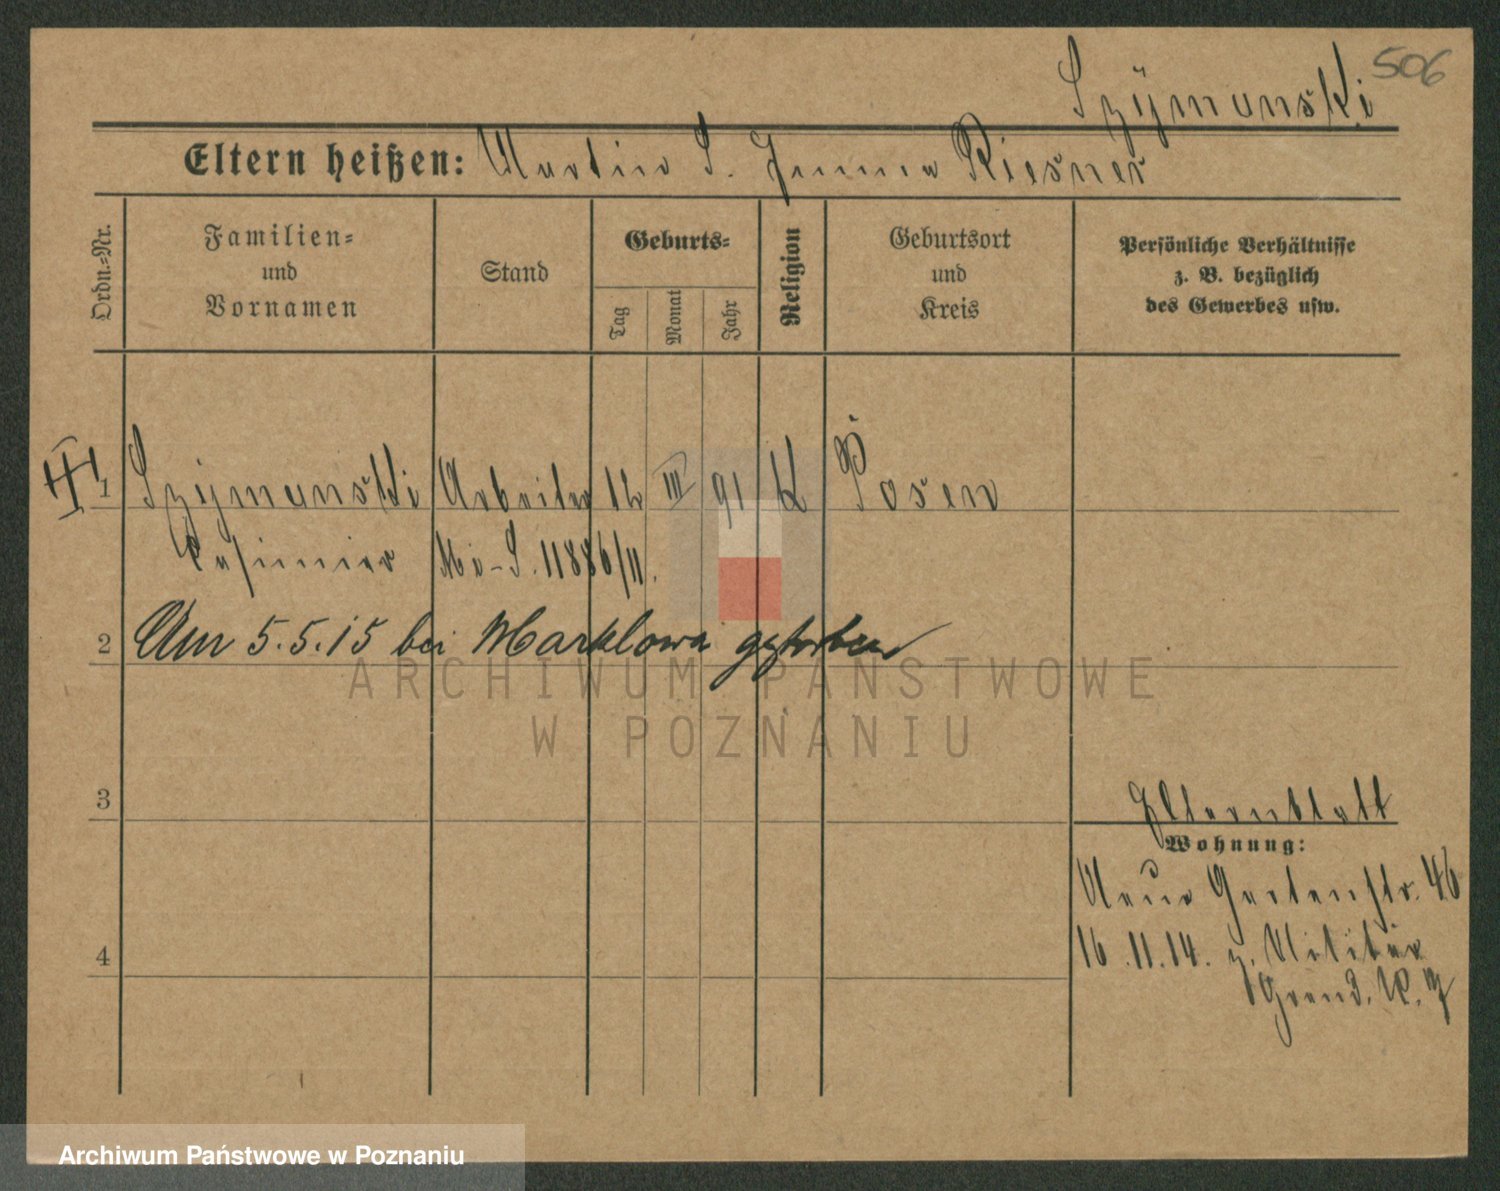 506
Szÿmanski
Eltern heißen: Martin S. Emma Riesner
Ordn.-Nr.
Familien-
und
Vornamen
Stand
Geburts-
Tag
Monat
Jahr
Religion
Geburtsort
und
Kreis
Persönliche Verhältnisse
z. B. bezüglich
des Gewerbes usw.
1 Szÿmanski Arbeiter 12 III 91 K Posen
Kasimier Mi-S. 11886/11.
2 Am 5.5.15 bei Marklowa gestorben
3
Elternblatt
Wohnung:
Neue Gartenstr. 46
16.11.14. z. Militär
4
Grend. R. 7
ARCHIWUM PAŃSTWOWE
W POZNANIU
Archiwum Państwowe w Poznaniu